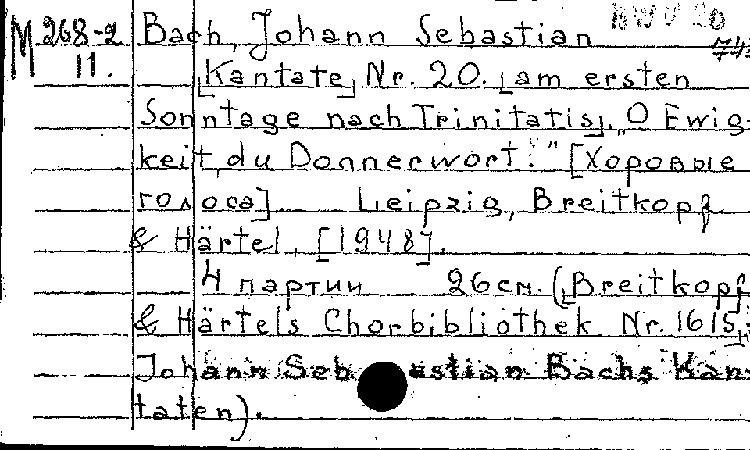 M 268-2 Bach, Johann Sebastian BWV 20
11. [Kantate] Nr. 20. [am ersten
Sonntage nach Trinitatis]. "O Ewig-
keit, du Donnerwort." [Хоровые
голоса] Leipzig, Breitkopf
& Härtel, [1948].
4 партии 26см. ([Breitkopf
& Härtels Chorbibliothek Nr. 1615]
Johann Sebastian Bachs Kan-
taten).